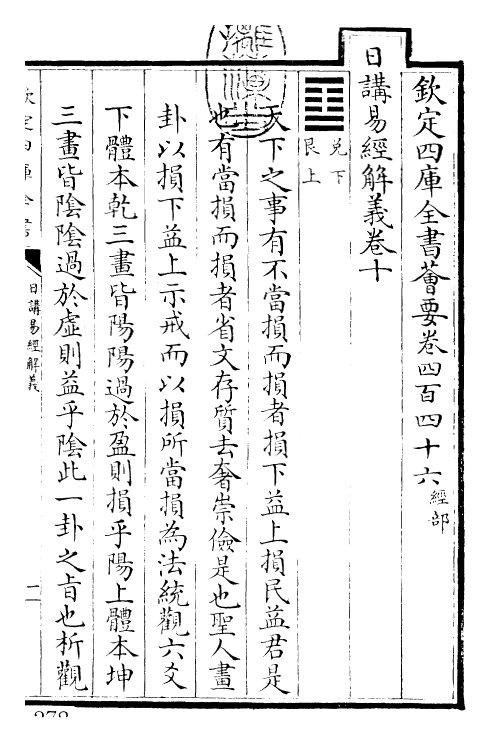 欽定四庫全書薈要卷四百四十六經部
日講易經解義卷十
兑下
艮上
天下之事有不當損而損者損下益上損民益君是
也有當損而損者省文存質去奢崇儉是也聖人畫
卦以損下益上示戒而以損所當損為法統觀六爻
下體本乾三畫皆陽陽過於盈則損乎陽上體本坤
三畫皆陰陰過於虛則益乎陰此一卦之㫖也析觀
欽定四庫全書
日講易經解義
一